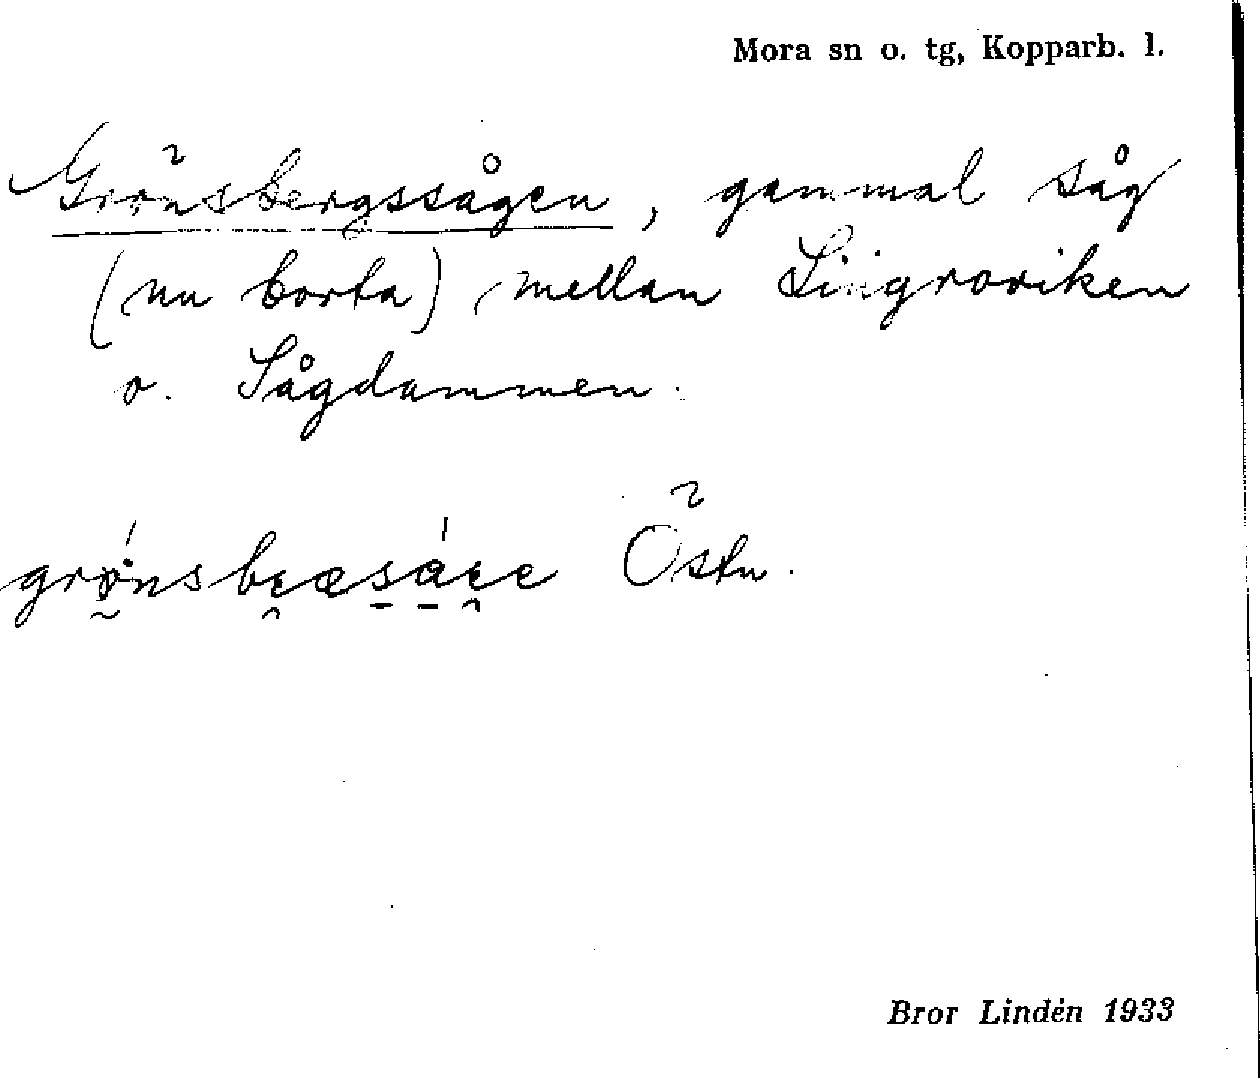 Mora sn o. tg, Kopparb. l.
Grönsbergssågen, gammal såg
(nu borta) mellan Lingroviken
o. Sågdammen.
Östn.
Bror Lindén 1933